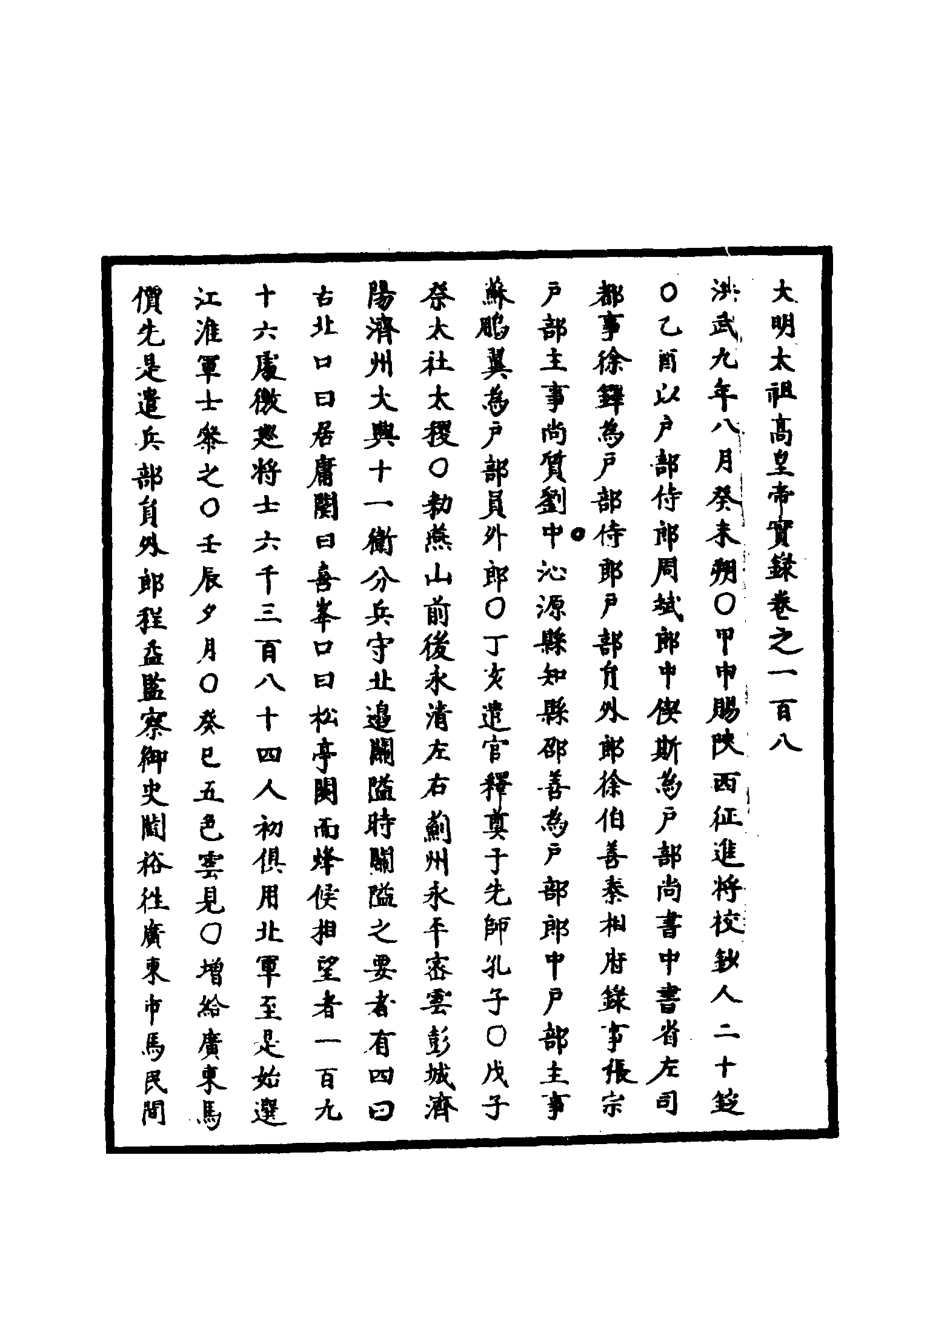 大明太祖高皇帝實錄卷之一百八
洪武九年八月癸未朔〇甲申賜陝西征進將校鈔人二十錠
〇乙酉以户部侍郎周斌郎中偰斯為户部尚書中書省左司
都事徐鐸為户部侍郎户部員外郎徐伯善秦相府錄事張宗
户部主事尚質劉中沁源縣知縣邵善為户部郎中户部主事
蘇鵬翼為户部員外郎〇丁亥遣官釋奠于先師孔子〇戊子
祭太社太稷〇勑燕山前後永清左右薊州永平密雲彭城濟
陽濟州大興十一衛分兵守北邉關隘時關隘之要者有四曰
古北口曰居庸關曰喜峯口曰松亭関而烽候相望者一百九
十六處徼廵將士六千三百八十四人初俱用北軍至是始選
江淮軍士叅之〇壬辰夕月〇癸巳五色雲見〇增給廣東馬
價先是遣兵部員外郎程益監察御史閻裕徃廣東市馬民間